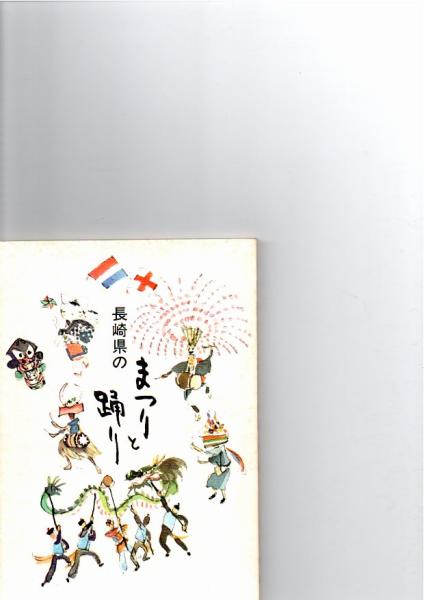 長崎県の
まつりと
踊り